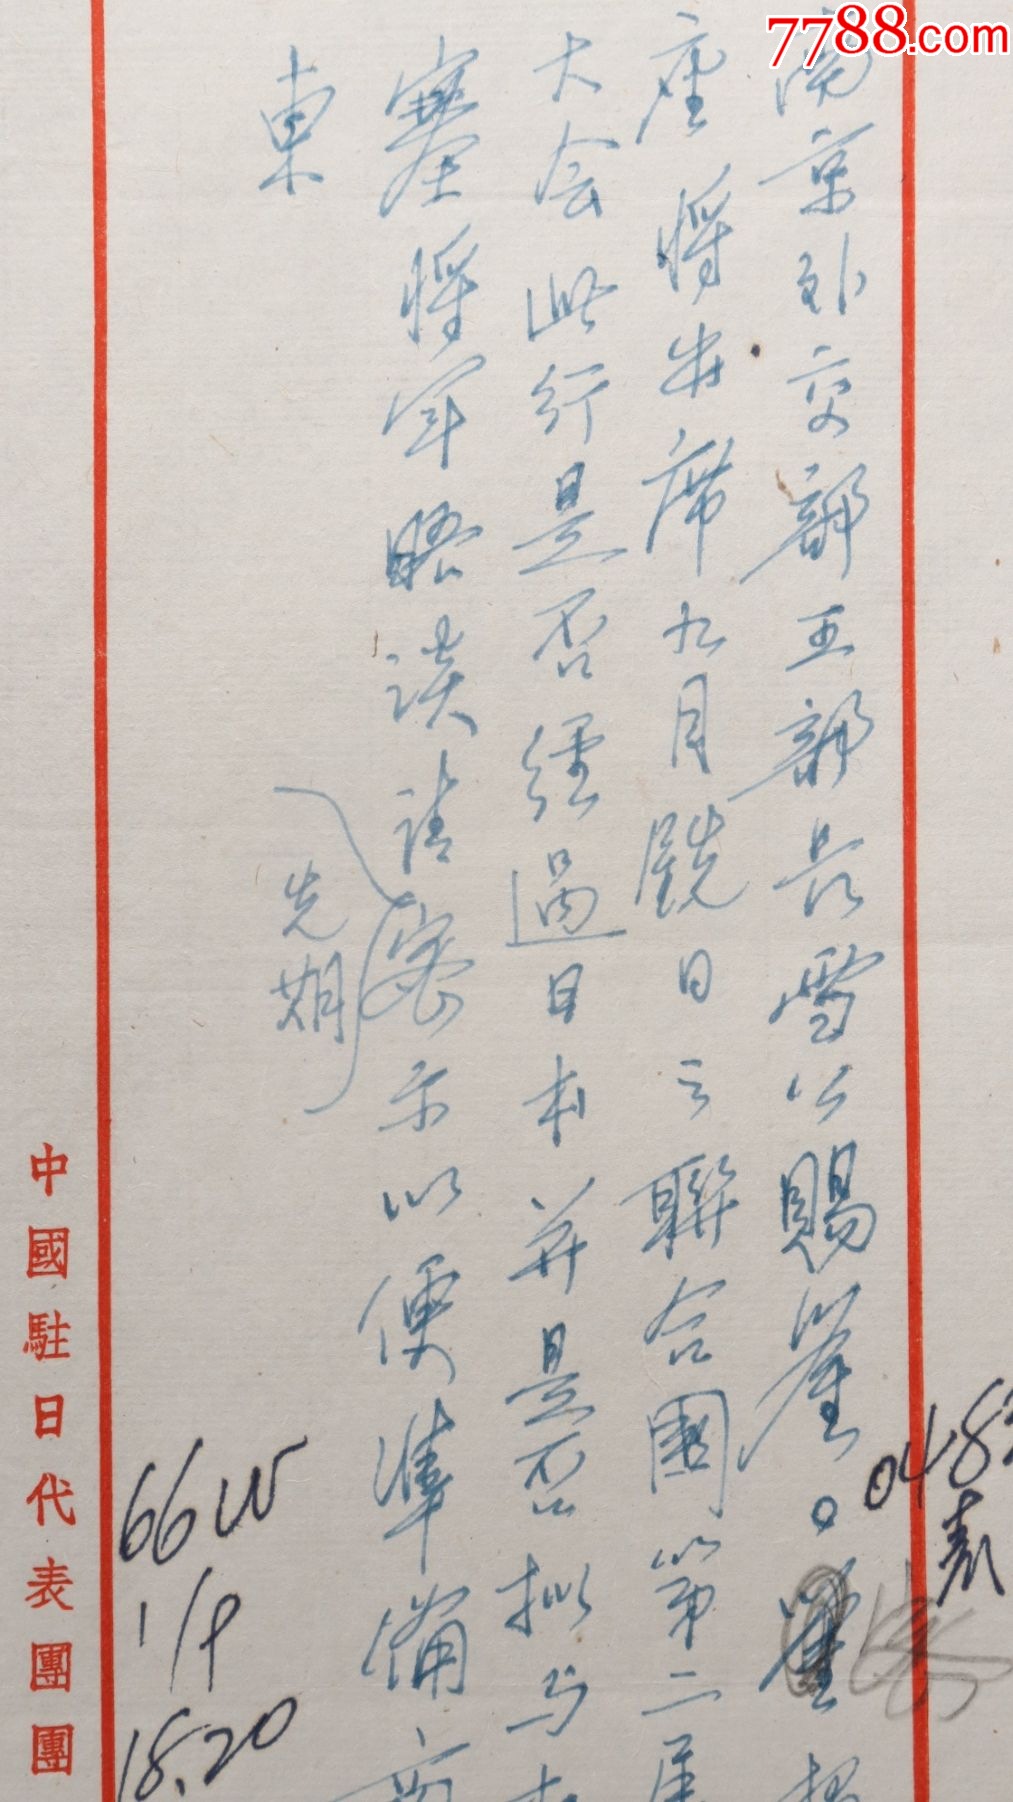 南京外交部王部長雪公賜鑒。
座將出席九月銑日之聯合國第二屆
大会此行是否經過日本并是否拟与
塞將軍晤談請密示以便準備
先期
東
中國駐日代表團團
66W
1/9
18.20
048
7788.com